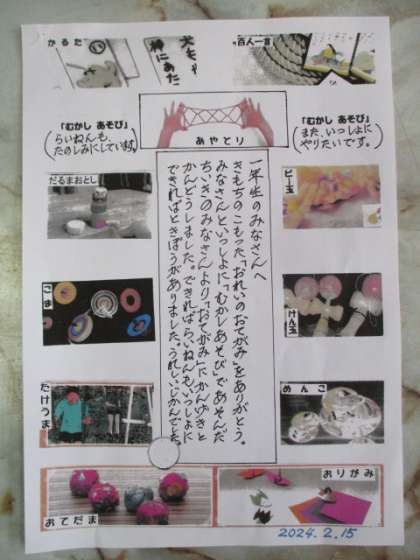 かるた
犬もや
棒にあた
百人一首
「むかし あそび」
らいねんも、
たのしみにしています。
あやとり
「むかし あそび」
また、いっしょに
やりたいです。
だるまおとし
ビー玉
こま
けん玉
たけうま
めんこ
一年生のみなさんへ
きもちのこもった、おれいのおてがみをありがとう。
みなさんといっしょに「むかしあそび」であそんだ
ちいきのみなさんより「おてがみ」にかんげきと
かんどうしました。できればらいねんもいっしょに
できればときぼうがありました。うれしいじかんでした。
おてだま
おりがみ
2024.2.15